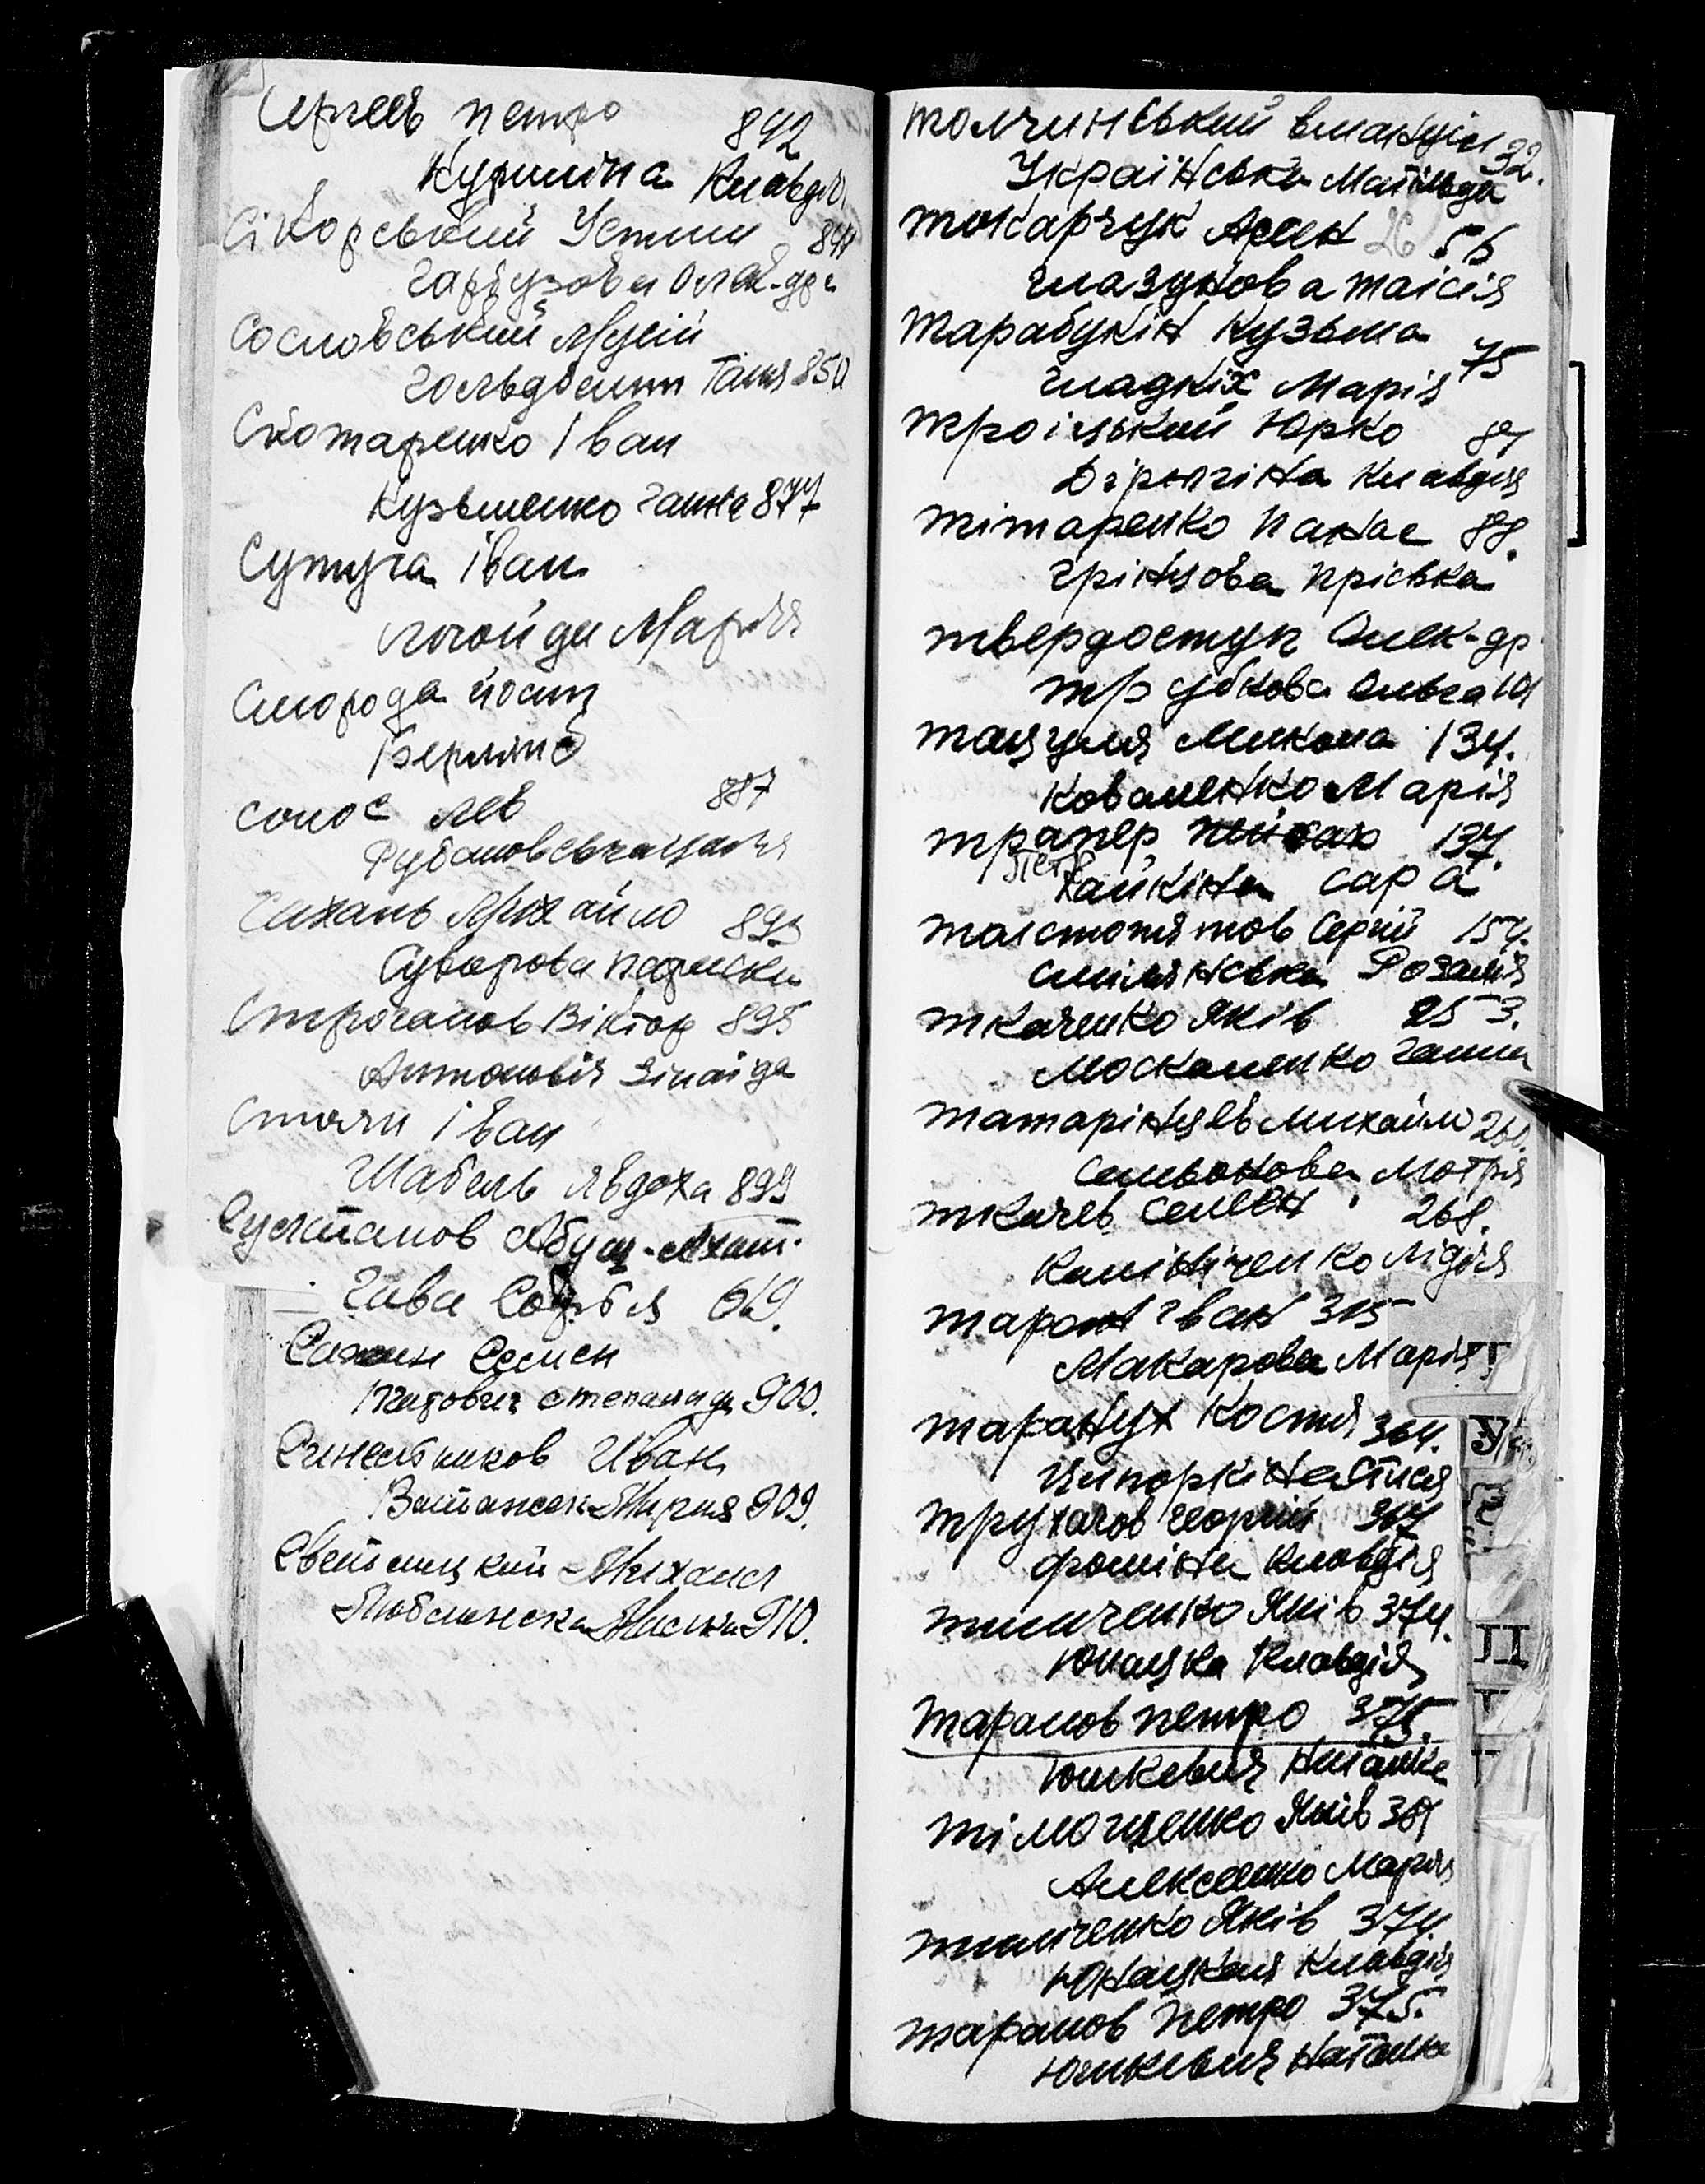 Сергеев Петро 842
Куришіна Клавдія
Сікорський Устим 844
Гарбузова Олек-дра
Сосновський Мусій
Гольдбешт Таня 850
Скотаренко Іван
Кузьменко Ганна 877
Сутуга Іван
Марія
Сморода Йосип
Берлінд
Сокос Лев 887
Сахань Михайло 893
Суворова Параска
Строганов Віктор 895
Антонович Зінаіда
Стоян Іван
Шабель Явдоха 899
Султанов Абдул-Ахат.
Гива Софія 619.
Сахан Семен
Степанида 900.
Синельников Иван
Мария 909.
Светлицкий Михаил
910.
Толчинський 32.
Українська Матільда
Токарчук Арсен 26 56
Глазунова Таісія
Тарабукін Кузьма 75
Гладкіх Марія
Троіцький Юрко 87
Клавдія
Тітаренко Панас 88.
Грінцова Пріська
Твердоступ Олек-др
Трубкова Ольга 101
Тацуля Микола 134.
Коваленко Марія
Трапер 137.
Петро
Хайкіна Сара
Толстопятов Сергій 154.
Смілянська Розалія
Ткаченко Яків 253.
Москаленко Ганна
Татарінцев Михайло 260.
Семьонова Мотря
Ткачев Семен 268.
Калініченко Лідія
Таран Іван 315
Макарова Марія
Таранух Костя 364.
Ципоркіна
Трухачов Георгій 367
Фоміна Клавдія
Тимченко Яків 374.
Юнацка Клавдія
Таранов Петро 375.
Юшкевич Наталка
Тімощенко Яків 389
Алексеенко Марія
Тимченко Яків 374.
Юнацкая Клавдія
Таранов Петро 375.
Юшкевич Наталка